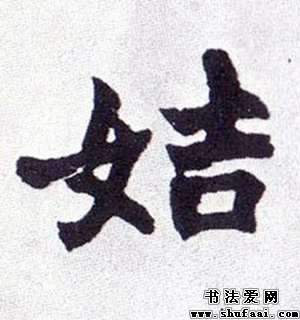 姞
书法爱网
www.shufaai.com